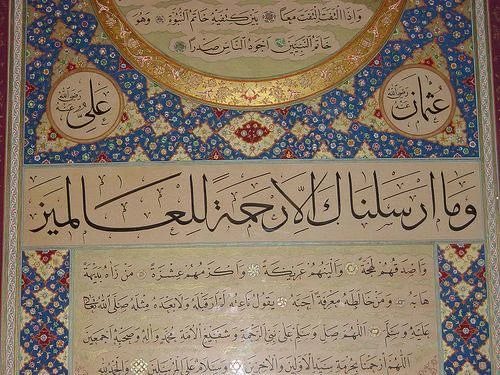 وَاِذَا الْتَفَتَ الْتَفَتَ مَعًا بَيْنَ كَتِفَيْهِ خَاتَمُ النُّبُوَّةِ وَهُوَ
خَاتَمُ النَّبِيّينَ اَجْوَدُ النَّاسِ صَدْرًا
عُثْمَان رَضِيَ اللهُ عَنْهُ
عَلِيّ رَضِيَ اللهُ عَنْهُ
وما ارسلناك الا رحمة للعالمين
وَاَصْدَقُهُمْ لَهْجَةً وَاَلْيَنُهُمْ عَرِيكَةً وَاَكْرَمُهُمْ عِشْرَةً مَنْ رَاٰهُ بَدِيهَةً
هَابَهُ وَمَنْ خَالَطَهُ مَعْرِفَةً اَحَبَّهُ يَقُولُ نَاعِتُهُ لَمْ اَرَ قَبْلَهُ وَلَا بَعْدَهُ مِثْلَهُ صَلَّى اللهُ تَعَالَى
عَلَيْهِ وَسَلَّمَ اَللّٰهُمَّ صَلِّ وَسَلِّمْ عَلَى نَبِيِّ الرَّحْمَةِ وَشَفِيعِ الْاُمَّةِ مُحَمَّدٍ وَاٰلِهِ وَصَحْبِهِ اَجْمَعِينَ
اَللّٰهُمَّ ارْحَمْنَا بِحُرْمَةِ سَيِّدِ الْاَوَّلِينَ وَالْاٰخِرِينَ وَسَلَامٌ عَلَى الْمُرْسَلِينَ وَالْحَمْدُ لِلّٰهِ